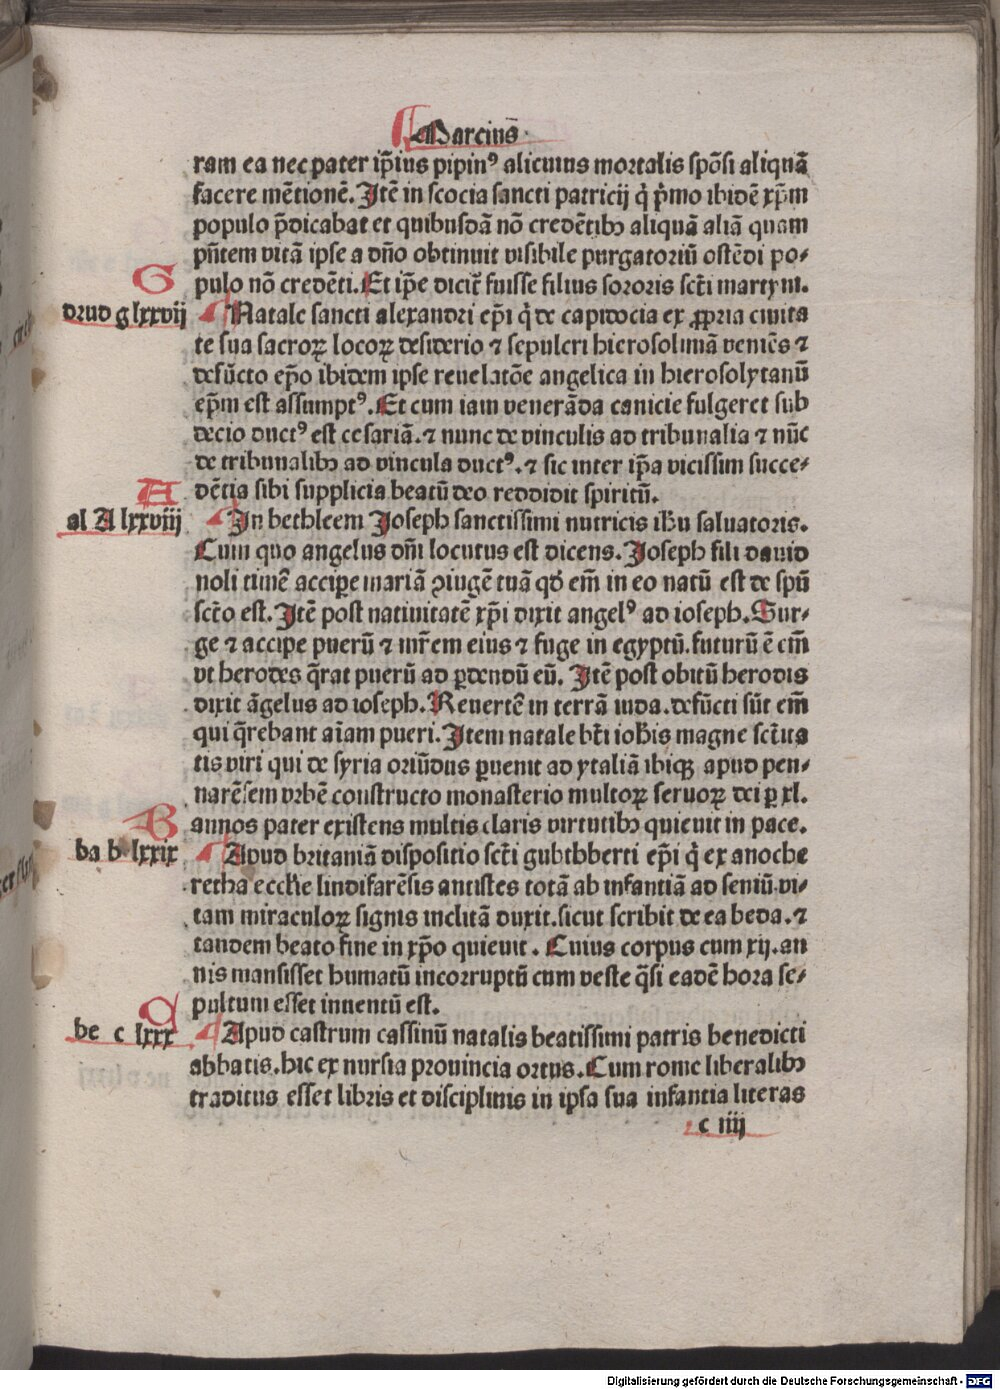 Marciꝰ
ram ea nec pater ip̄ius pipinꝰ alicuius mortalis spōsi aliquā
facere mētionē. Itē in scocia sancti patricij q̇ p̍mo ibidē xp̄m
populo p̄dicabat et quibusdā nō credētibꝫ aliquā aliā quam
pn̄tem vitā ipse a dn̄o obtinuit visibile purgatoriū ostēdi po⸗
pulo nō credēti. Et ip̄e dicit̄ fuisse filius sororis sct̄i martyni.
G
drud g lxxvij Natale sancti alexandri ep̄i q̇ de capidocia ex ꝓpria ciuita
te sua sacroꝝ locoꝝ desiderio ⁊ sepulcri hierosolimā veniēs ⁊
defūcto ep̄o ibidem ipse reuelatōe angelica in hierosolytanū
ep̄m est assumptꝰ. Et cum iam venerāda canicie fulgeret sub
decio ductꝰ est cesariā. ⁊ nunc de vinculis ad tribunalia ⁊ nūc
de tribunalibꝫ ad vincula ductꝰ. ⁊ sic inter ip̄a vicissim succe⸗
dētia sibi supplicia beatū deo reddidit spiritū.
A
al A lxxviij In bethleem Joseph sanctissimi nutricis ih̄u saluatoris.
Cum quo angelus dn̄i locutus est dicens. Joseph fili dauid
noli timē accipe mariā ꝯiugē tuā qđ em̄ in eo natū est de spū
sct̄o est. Itē post natiuitatē xp̄i dixit angelꝰ ad ioseph. Sur⸗
ge ⁊ accipe puerū ⁊ mr̄em eius ⁊ fuge in egyptū. futurū ē em̄
vt herodes q̄rat puerū ad ꝑdendū eū. Itē post obitū herodis
dixit āgelus ad ioseph. Reuertē in terrā iuda. defūcti sūt em̄
qui q̄rebant aīam pueri. Item natale bt̄i ioh̄is magne sct̄ita
tis viri qui de syria oriūdus ꝑuenit ad ytaliā ibiqꝫ apud pen⸗
narēsem vrbē constructo monasterio multoꝝ seruoꝝ dei ꝑ xl.
B
annos pater existens multis claris virtutibꝫ quieuit in pace.
ba b lxxix Apud britaniā dispositio sct̄i gubthberti ep̄i q̇ ex anoche
retha eccl̄ie lindifarēsis antistes totā ab infantiā ad seniū. vi⸗
tam miraculoꝝ signis inclitā duxit. sicut scribit de ea beda. ⁊
tandem beato fine in xp̄o quieuit. Cuius corpus cum xij. an
nis mansisset humatū incorruptū cum veste q̄si eadē hora se⸗
pultum esset inuentū est.
C
be c lxxx Apud castrum cassinū natalis beatissimi patris benedicti
abbatis. hic ex nursia prouincia ortus. Cum rome liberalibꝫ
traditus esset libris et disciplinis in ipsa sua infantia literas
c iiij
Digitalisierung gefördert durch die Deutsche Forschungsgemeinschaft - DFG